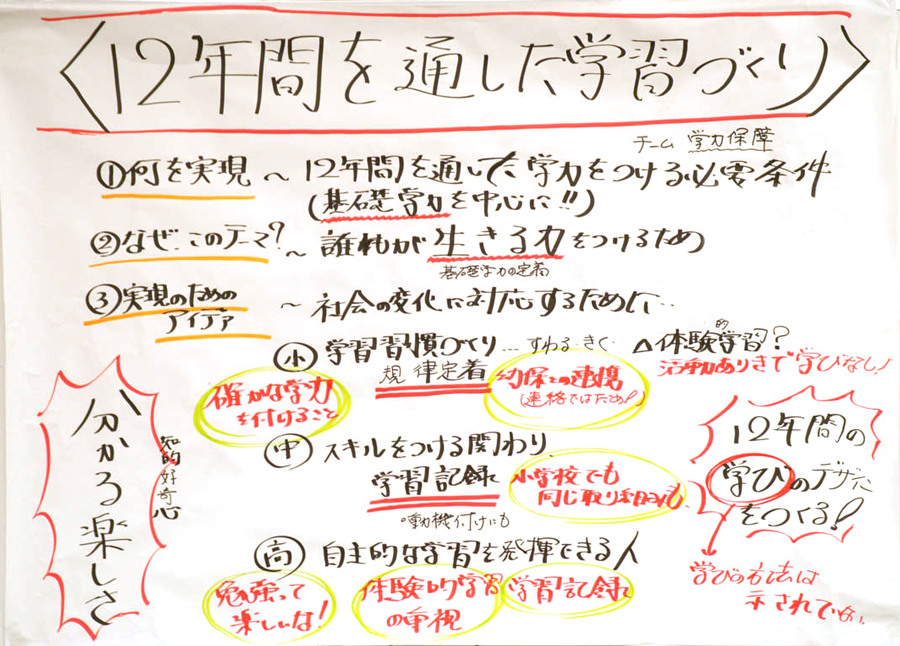 〈12年間を通した学習づくり〉
チーム 学力保障
①何を実現 ～ 12年間を通した学力をつける必要条件
(基礎学力を中心に!!)
②なぜ、このテーマ? ～ 誰れもが 生きる力をつけるため
基礎学力の定着
③実現のための ～ 社会の変化に対応するために…
アイデア
小 学習習慣づくり…すわる・きく △体験的学習?
規律定着
活動ありきで学びなし!
確かな学力
を付けること
幼保との連携
(連絡ではだめ!)
中 スキルをつける関わり
学習記録
小学校でも
同じ取り組みも
動機付けにも
高 自主的な学習を発揮できる人
勉強って
楽しいな!
体験的学習
の重視
学習記録
分かる楽しさ
知的好奇心
12年間の
学びのデザイン
をつくる!
学びの方法は
示されてない